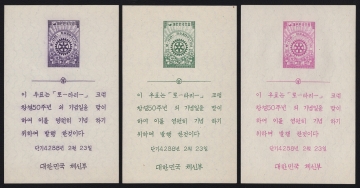 이 우표는 「로-타리-」 코럽
창설50주년 의 기념일을 맞이
하여 이를 영원히 기념 하기
위하여 발행 한것이다
단기4288년 2월 23일
대한민국 체신부
이 우표는 「로-타리-」 코럽
창설50주년 의 기념일을 맞이
하여 이를 영원히 기념 하기
위하여 발행 한것이다
단기4288년 2월 23일
대한민국 체신부
이 우표는 「로-타리-」 코럽
창설50주년 의 기념일을 맞이
하여 이를 영원히 기념 하기
위하여 발행 한것이다
단기4288년 2월 23일
대한민국 체신부